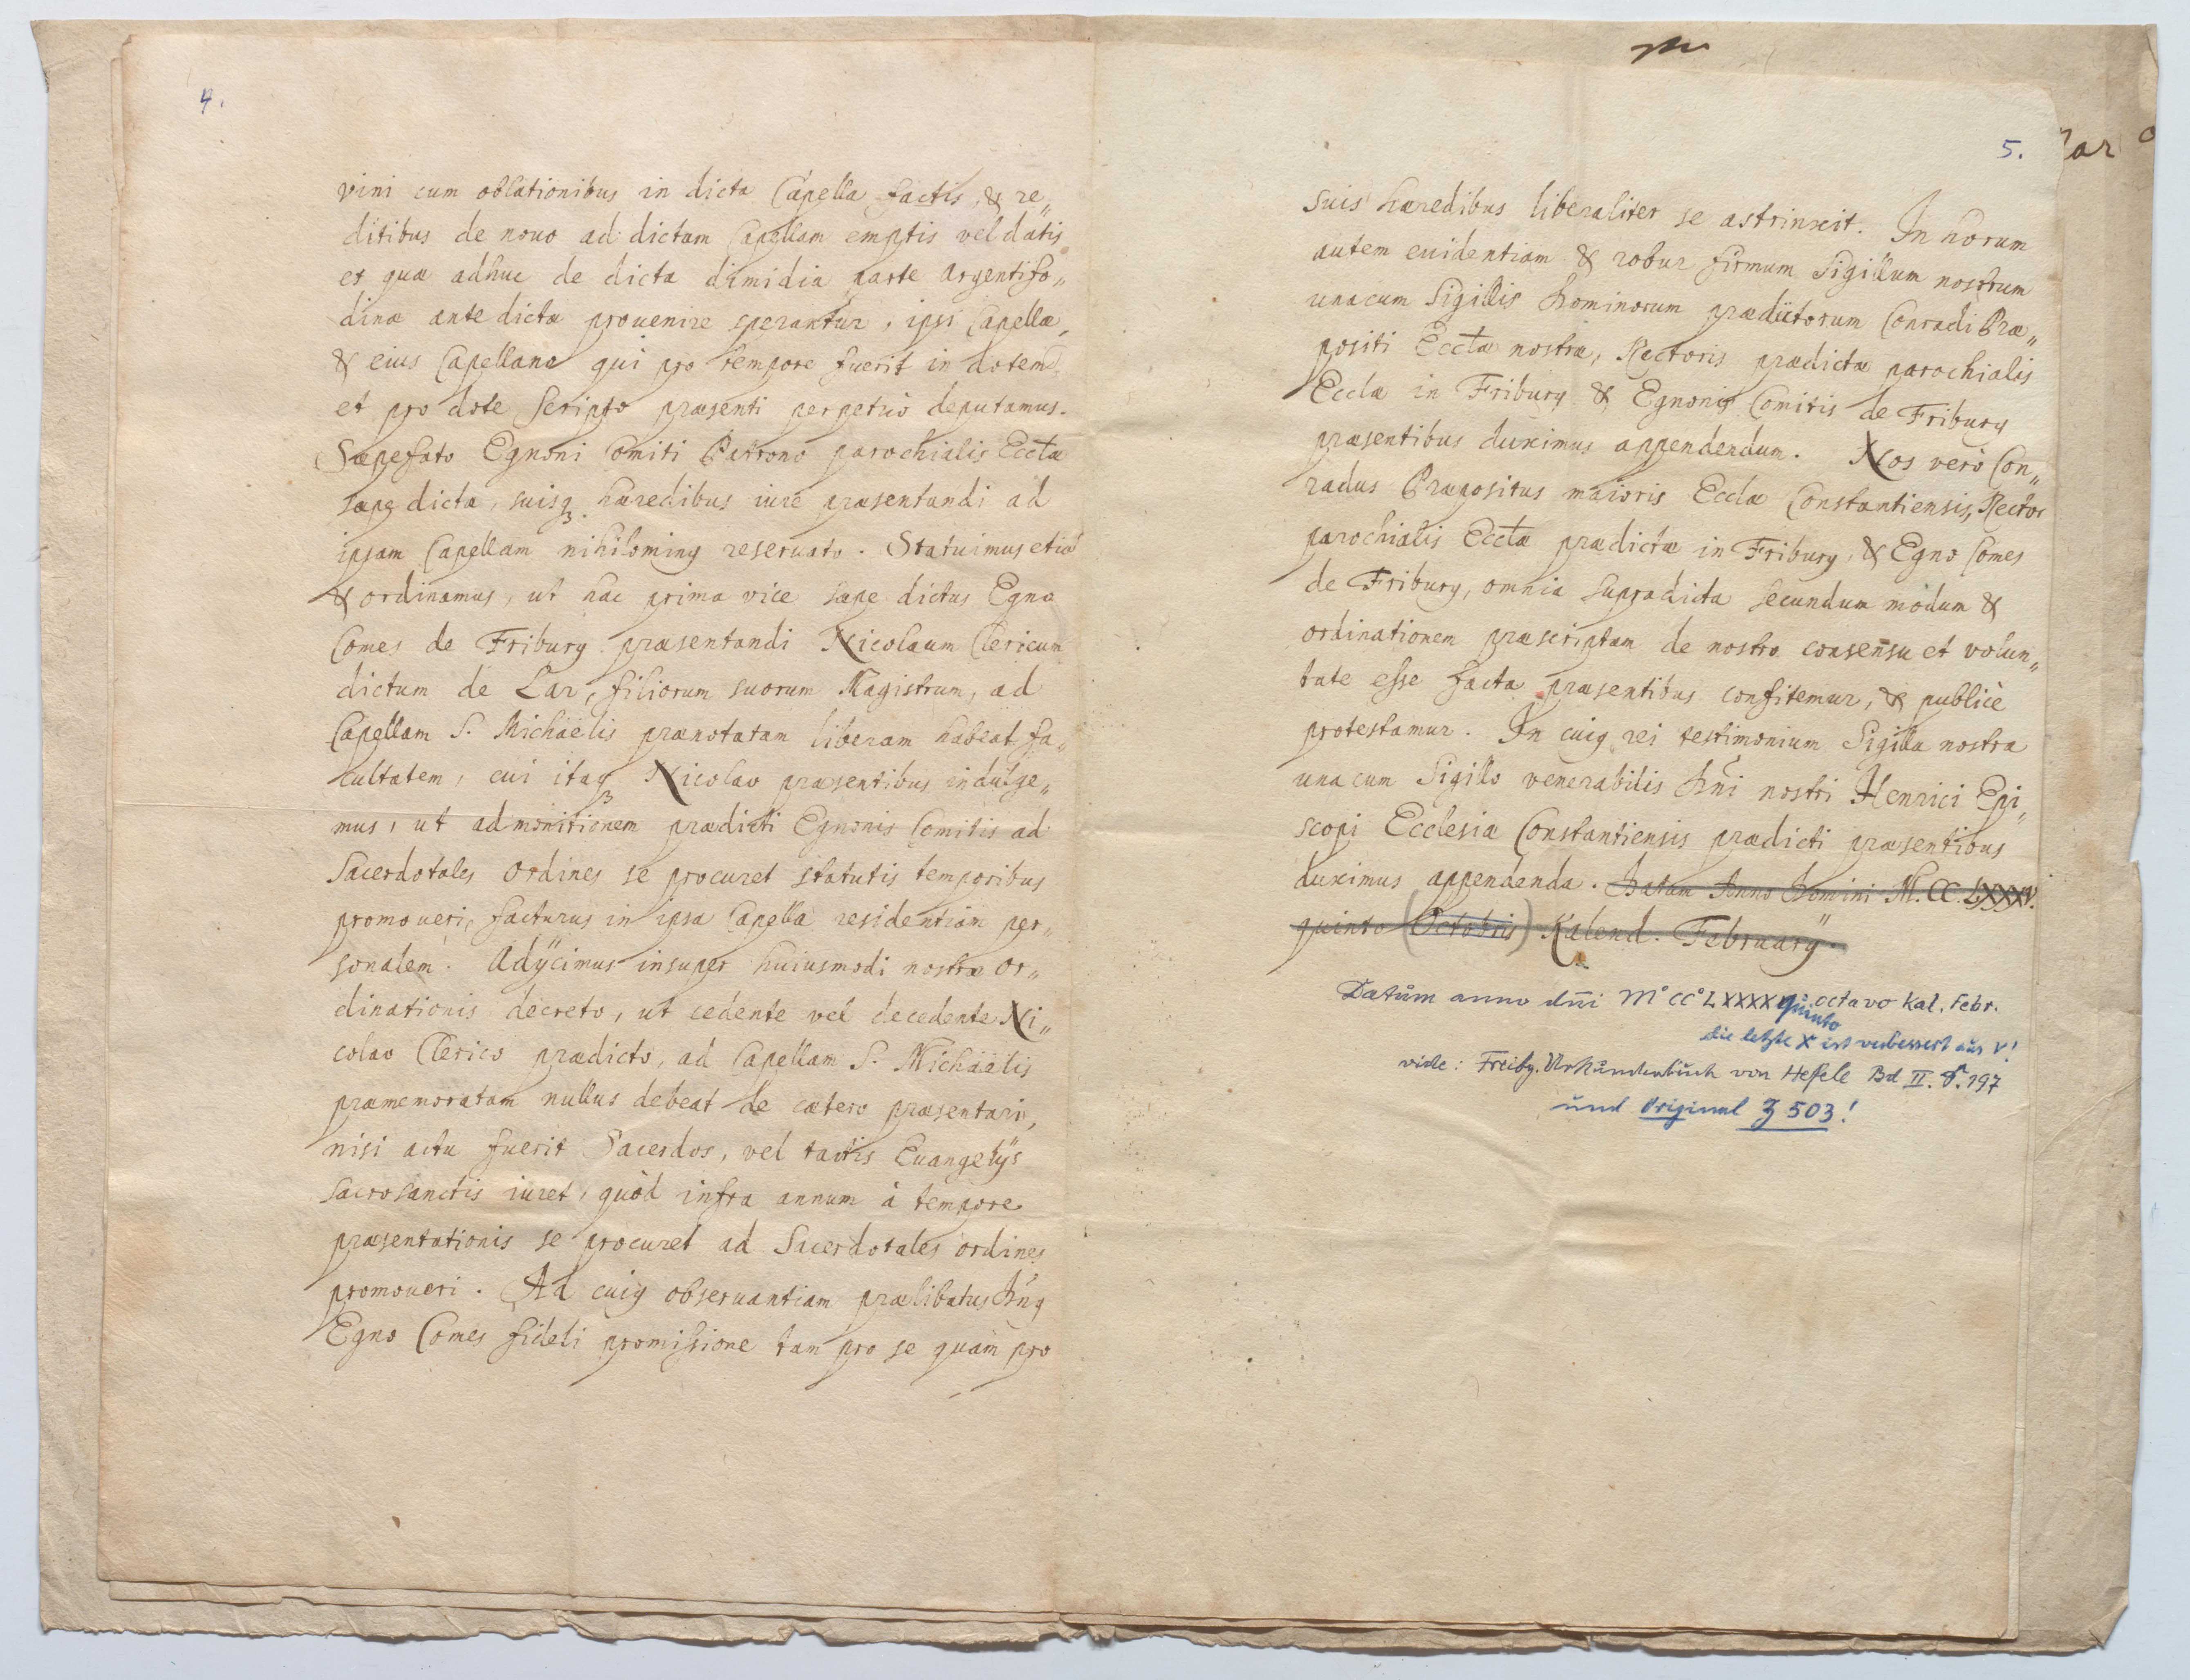 4.
vini cum oblationibus in dicta Capella factis, & re„
ditibus de nouo ad dictam Capellam emptis vel datis
et quæ adhuc de dicta dimidia parte Argentifo„
dinæ ante dictæ prouenire sperantur, ipsi Capellæ,
& eius Capellano qui pro tempore fuerit in dotem
et pro dote scripto præsenti perpetuò deputamus.
Sæpefato Egnoni Comiti Patrono parochialis Eccłæ
sæpe dictæ, suisq₃ hæredibus iure præsentandi ad
ipsam Capellam nihilominꝰ reseruato. Statuimus etiã
& ordinamus, ut hac prima vice sæpe dictus Egno
Comes de Friburg præsentandi Nicolaum Clericum
dictum de Lar, filiorum suorum Magistrum, ad
Capellam S. Michaëlis prænotatam liberam habeat fa„
cultatem, cui itaq₃ Nicolao præsentibus indulge„
mus, ut admonitionem prædicti Egnonis Comitis ad
Sacerdotales Ordines se procuret statutis temporibus
promoueri, facturus in ipsa Capella residentiam per„
sonalem. Adÿcimus insuper huiusmodi nostræ Or„
dinationis decreto, ut cedente vel decedente Ni„
colao Clerico prædicto, ad Capellam S. Michaëlis
præmemoratam nullus debeat de cætero præsentari,
nisi actu fuerit Sacerdos, vel tactis Euangelÿs
sacrosanctis iuret, quòd infra annum à tempore
præsentationis se procuret ad Sacerdotales ordines
promoueri. Ad cuiꝰ obseruantiam prælibatus Dñꝰ
Egno Comes fideli promissione tam pro se quàm pro
5.
suis hæredibus liberaliter se astrinxit. In horum
autem euidentiam & robur firmum Sigillum nostrum
unacum Sigillis Dominorum prædictorum Conradi Præ„
positi Eccłæ nostræ, Rectoris prædictæ parochialis
Eccłæ in Friburg & Egnonis Comitis de Friburg
præsentibus duximus appendendum. Nos verò Con„
radus Præpositus maioris Eccłæ Constantiensis, Rector
parochialis Eccłæ prædictæ in Friburg, & Egno Comes
de Friburg, omnia supradicta secundum modum &
ordinationem præscriptam de nostro consensu et volun„
tate esse facta præsentibus confitemur, & publicè
protestamur. In cuiꝰ rei testimonium Sigilla nostra
una cum Sigillo venerabilis Dñi nostri Henrici Epi„
scopi Ecclesiæ Constantiensis prædicti præsentibus
duximus appendenda. Datum Anno Domini M.CC.LXXXV.
quinto (Octobris) Kalend. Februarÿ.
Datum anno dñi M° CC° LXXXX quinto octavo Kal. Febr.
die letzte X ist verbessert aus V!
vide: Freibg. Urkundenbuch von Hefele Bd II. S. 197
und Original Z 503!